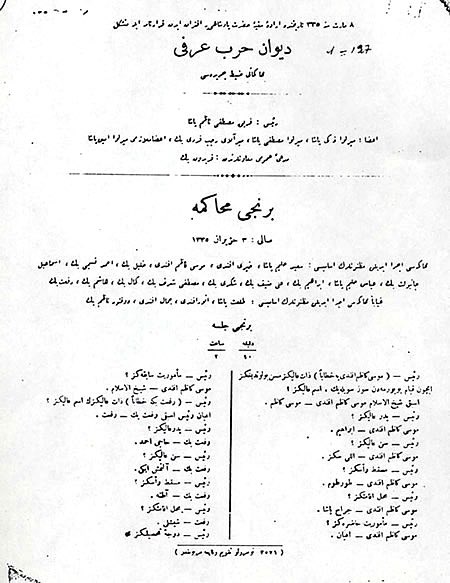 ٨ مارت سنه ٣٣٥ تاریخنده ارادهٔ سنیهٔ حضرت پادشاهی‌یه اقتران ایدن قرارنامه ایله متشکل
دیوان حرب عرفی
١ – ١٢٧
محاکماتی ضبط جریده‌سی
رئیس : فریق مصطفی ناظم پاشا
اعضا : میرلوا ذکی پاشا ، میرلوا مصطفی پاشا ، میرآلای رجب فردی بك ،
مدعی عمومی معاونلرندن : فریدون بك
برنجی محاکمه
صالی : ٣ حزیران ١٣٣٥
محاکمه‌سی اجرا ایدیلن مظنونلرك اسامیسی : سعید حلیم پاشا ، خیری افندی ، موسی کاظم افندی ، خلیل بك ، احمد نسیمی بك ، اسماعیل
جانبولاد بك ، عباس حلیم پاشا ، ابراهیم بك ، علی منیف بك ، شکری بك ، مصطفی شرف بك ، کمال بك ، هاشم بك ، رفعت بك
غیاباً محاکمه‌سی اجرا ایدیلن مظنونلرك اسامیسی : طلعت پاشا ، انور افندی ، جمال افندی ، دوقتور ناظم بك .
برنجی جلسه
دقیقه ساعت
١٠ ٢
رئیس — ( موسی کاظم افندی‌یه خطاباً ) ذات عالیکز
ایچون قیام بویورمه‌دن سوز سویله‌یك . اسم عالیکز ؟
اسبق شیخ الاسلام موسی کاظم افندی — موسی کاظم .
رئیس — پدر عالیکز ؟
موسی کاظم افندی — ابراهیم .
رئیس — سن عالیکز ؟
موسی کاظم افندی — اللی سکز .
رئیس — مسقط رأسکز ؟
موسی کاظم افندی — طورطوم .
رئیس — محل اقامتکز ؟
موسی کاظم افندی — جراح پاشا .
رئیس — مأموریت حاضره‌کز ؟
موسی کاظم افندی — اعیان .
رئیس — مأموریت سابقه‌کز ؟
موسی کاظم افندی — شیخ الاسلام .
رئیس — ( رفعت بکه خطاباً ) ذات عالیکزك اسم عالیکز ؟
اعیان رئیس اسبقی رفعت بك — رفعت .
رئیس — پدر عالیکز ؟
رفعت بك — حاجی احمد .
رئیس — سن عالیکز ؟
رفعت بك — آلتمش ایکی .
رئیس — مسقط رأسکز ؟
رفعت بك — آطنه .
رئیس — محل اقامتکز ؟
رفعت بك — شیشلی .
رئیس — درجهٔ تحصیلکز ؟